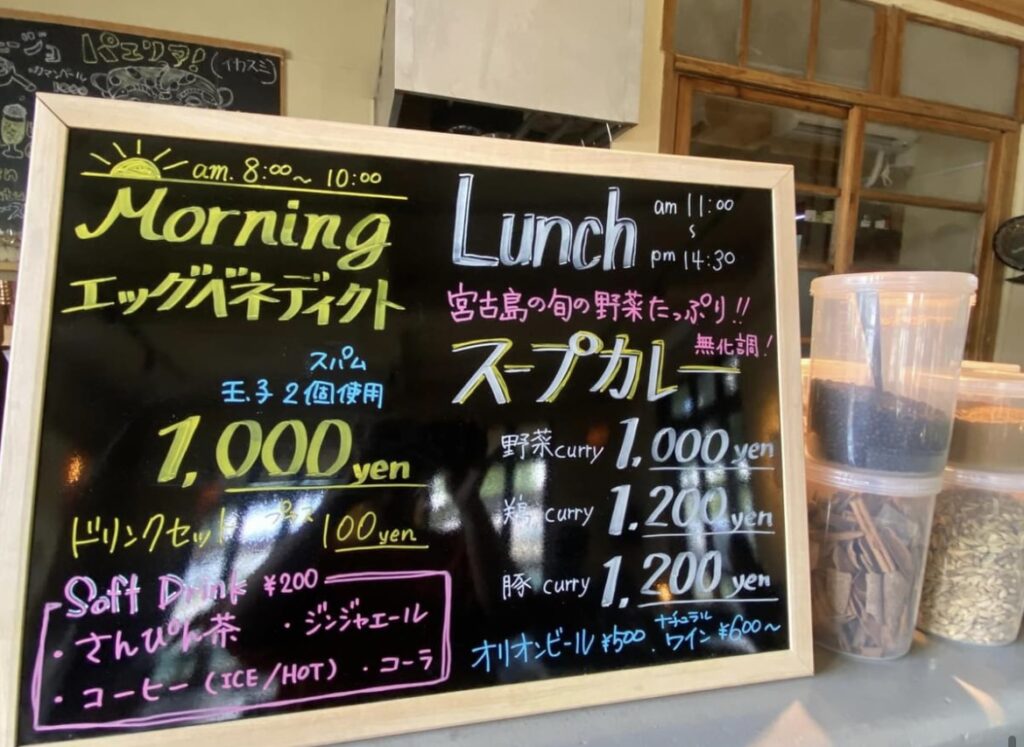 パエリア!
(イカスミ)
カマンベール
am. 8:00~10:00
Morning
エッグベネディクト
スパム
玉子2個使用
1,000 yen
ドリンクセット プラス 100yen
Soft Drink ¥200
・さんぴん茶 ・ジンジャエール
・コーヒー (ICE/HOT) ・コーラ
Lunch am 11:00
~
pm 14:30
宮古島の旬の野菜たっぷり!!
無化調!
スープカレー
野菜curry 1,000 yen
鶏 curry 1.200 yen
豚 curry 1,200 yen
オリオンビール ¥500 . ナチュラル ワイン ¥600~